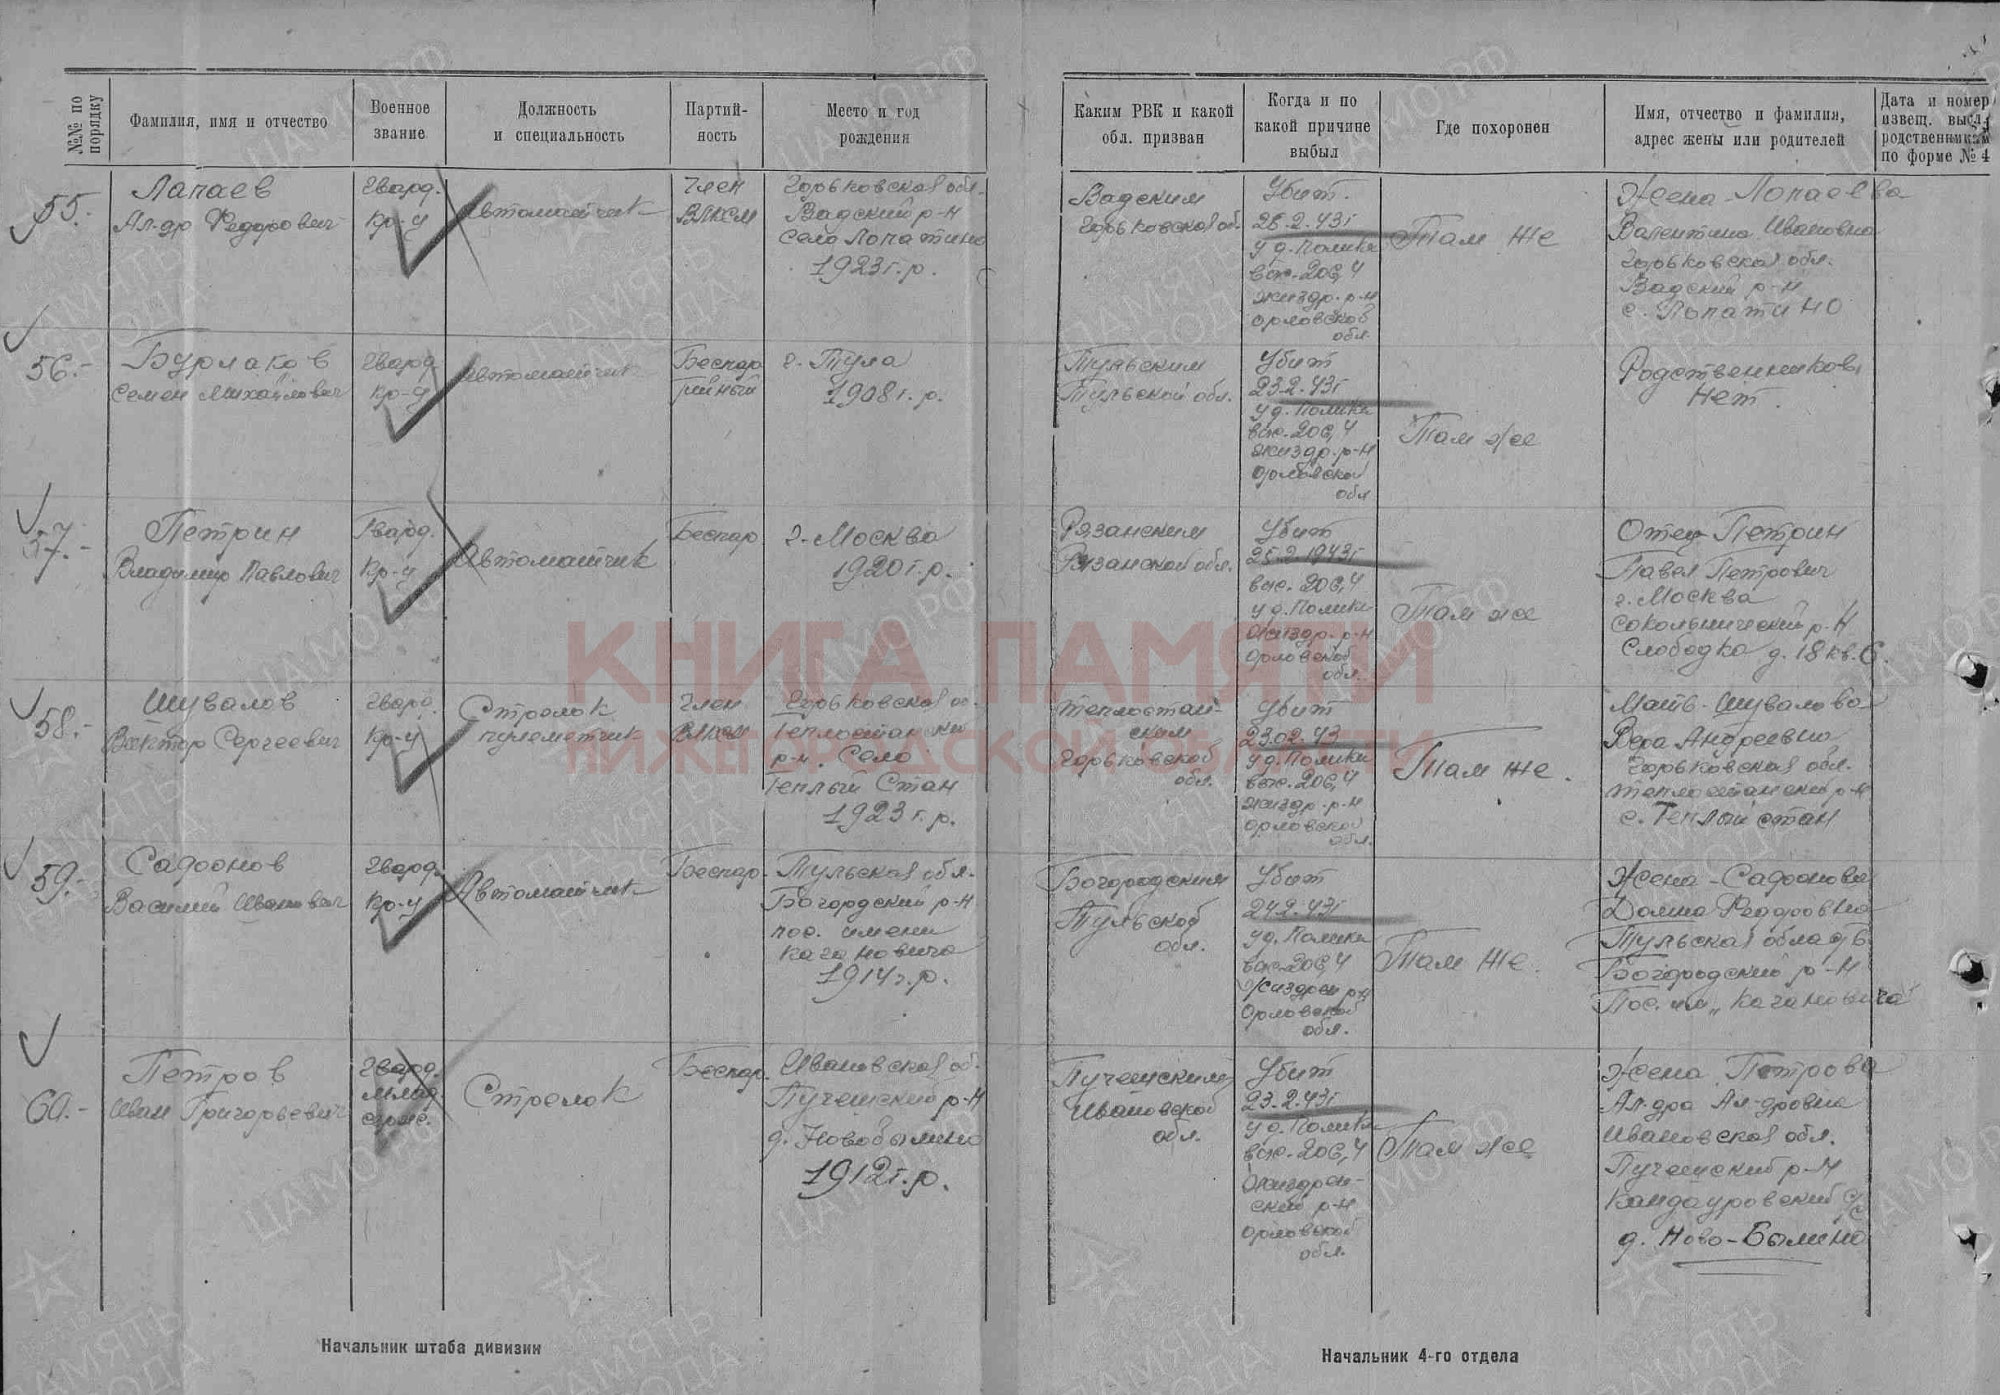 №№ по порядку
Фамилия, имя и отчество
Военное звание
Должность и специальность
Партий-ность
Место и год рождения
Каким РВК и какой обл. призван
Когда и по какой причине выбыл
Где похоронен
Имя, отчество и фамилия, адрес жены или родителей
Дата и номер извещ. высл. родственникам по форме № 4
55.-
Лапаев
Ал-др Федорович
Гвард.
Кр-ц
Автоматчик
Член
ВЛКСМ
Горьковская обл.
Вадский р-н
село Лопатино
1923 г.р.
Вадским
Горьковской об.
Убит.
25.2.43г
у д. Полики
выс. 206,4
жиздр. р-н
орловской
обл.
Там же
Жена - Лопаева
Валентина Ивановна
Горьковская обл.
Вадский р-н
с. Лопатино
56.-
Бурлаков
Семен Михайлович
Гвард.
Кр-ц
Автоматчик
Беспар
тийный
г. Тула
1908 г.р.
Тульским
Тульской обл.
Убит
23.2.43г
у д. Полики
выс. 206,4
жиздр. р-н
орловской
обл
Там же
Родственников
Нет.
57.-
Петрин
Владимир Павлович
Гвард.
Кр-ц
Автоматчик
Беспар
г. Москва
1920 г.р.
Рязанским
Рязанской обл.
Убит
25.2.1943г
выс. 206,4
у д. Полики
жиздр. р-н
орловской
обл.
Там же
Отец Петрин
Павел Петрович
г. Москва
сокольнический р-н
Слободка д. 18 кв. 6.
58.-
Шувалов
Виктор Сергеевич
Гвард.
Кр-ц
Стрелок
пулеметчик
Член
ВЛКСМ
Горьковская об.
Теплостанский
р-н. Село
Теплый Стан
1923 г.р.
Теплостан-
ским
Горьковской
обл.
Убит
23.02.43
у д. Полики
выс. 206,4
жиздр. р-н
орловской
обл.
Там же.
Мать - Шувалова
Вера Андреевна
Горьковская обл.
теплостанский р-н
с. Теплый стан
59.-
Сафонов
Василий Иванович
Гвард.
Кр-ц
Автоматчик
Беспар.
Тульская обл.
Богордский р-н
пос. имени
Кагановича
1914 г.р.
Богородским
Тульской
обл.
Убит
24.2.43г
у д. Полики
выс. 206,4
Жиздрен р-н
Орловской
обл.
Там же.
Жена - Сафонова
Федоровна
Тульская область
Богородский р-н
Пос. им „Кагановича"
60.-
Петров
Иван Григорьевич
Гвард.
млад
серж.
Стрелок
Беспар.
Ивановская об.
Пучежский р-н
д. Новобылино
1912 г.р.
Пучежским
Ивановской
обл.
Убит
23.2.43г
у д. Полики
выс. 206,4
Жиздрен-
ский р-н
орловской
обл.
Там же
Жена Петрова
Ал-дра Ал-дровна
Ивановская обл.
Пучежский р-н
Кандауровский с/с
д. Ново-Былино
Начальник штаба дивизии
Начальник 4-го отдела
КНИГА ПАМЯТИ
НИЖЕГОРОДСКОЙ ОБЛАСТИ
ЦАМО.РФ
ПАМЯТЬ НАРОДА